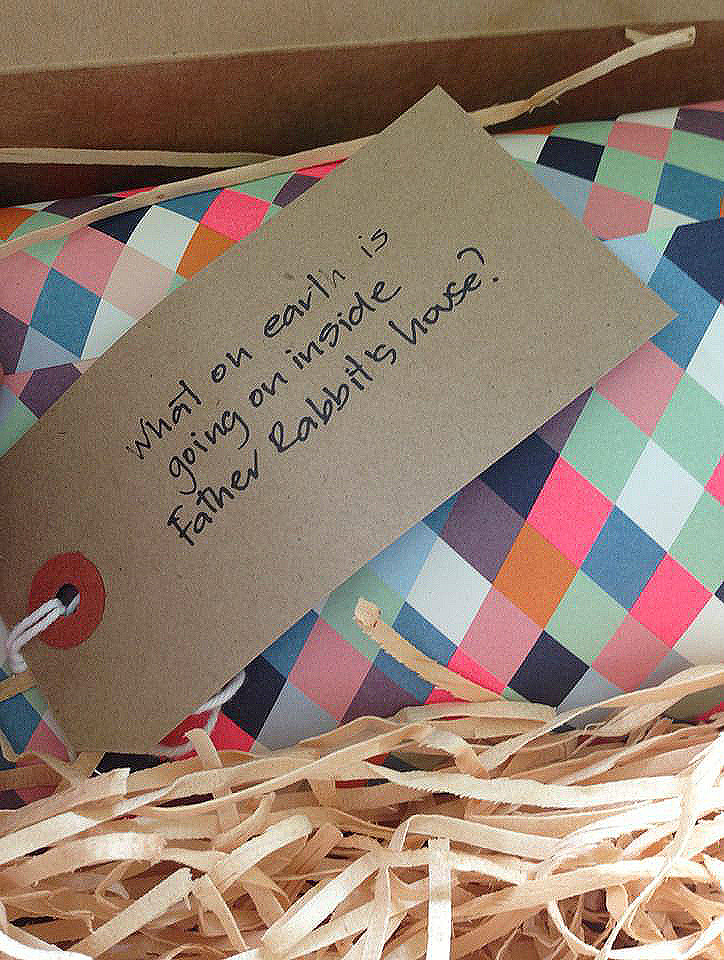 What on earth is
going on inside
Father Rabbit's house?